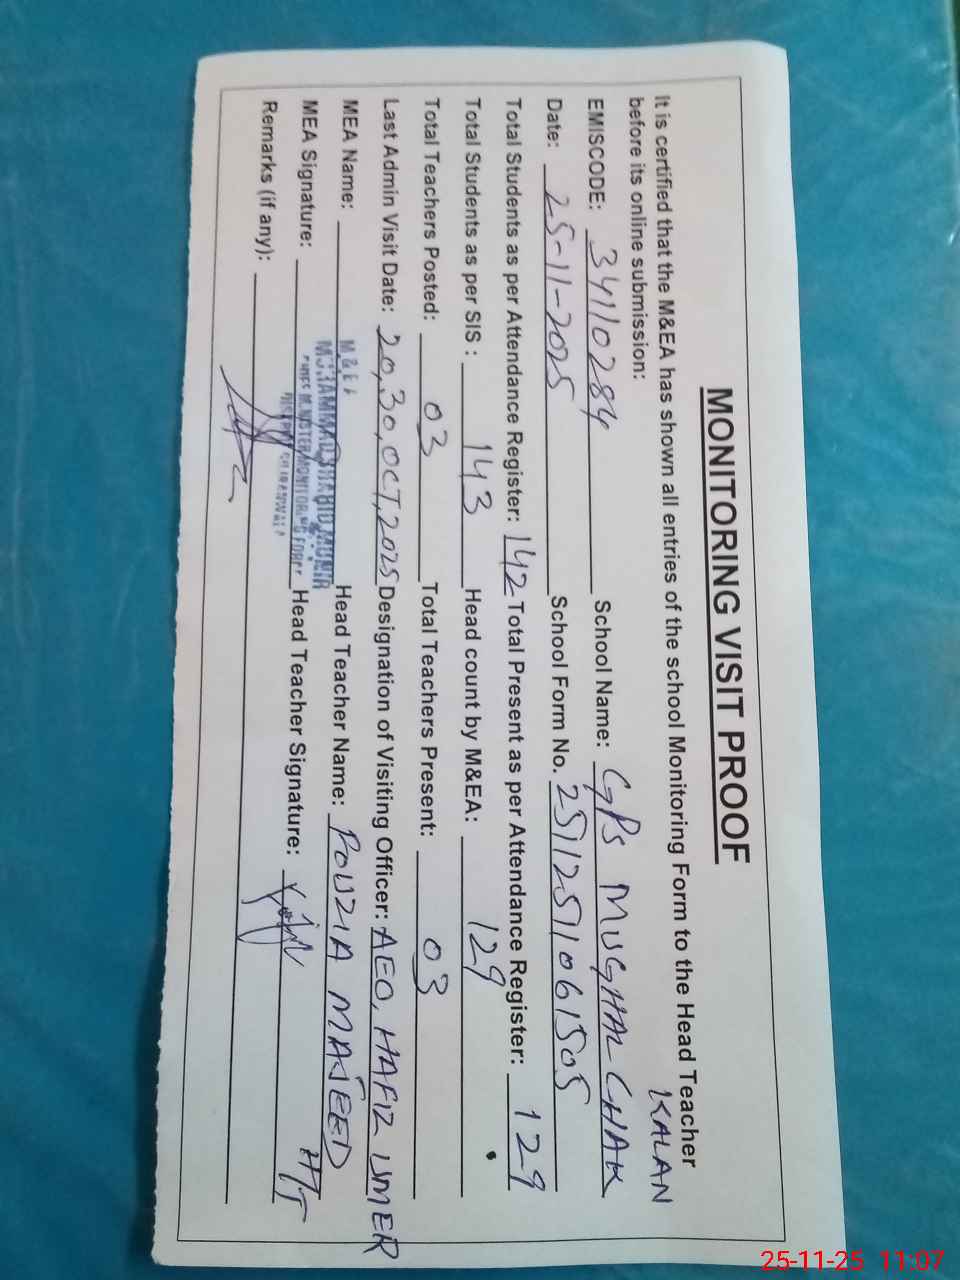 MONITORING VISIT PROOF
It is certified that the M&EA has shown all entries of the school Monitoring Form to the Head Teacher
before its online submission:
KALAN
EMISCODE: 34110284 School Name: GPS MUGHAL CHAK
Date: 25-11-2025 School Form No. 251251061505
Total Students as per Attendance Register: 142 Total Present as per Attendance Register: 129
Total Students as per SIS : 143 Head count by M&EA: 129
Total Teachers Posted: 03 Total Teachers Present: 03
Last Admin Visit Date: 20,30,OCT,2025 Designation of Visiting Officer: AEO, HAFIZ UMER
MEA Name: M&EA Head Teacher Name: FOUZIA MAJEED
MUHAMMAD SHAHID MUNIR
CHIEF MINISTER MONITORING FORCE
MEA Signature: Head Teacher Signature: H/T
Remarks (if any):
25-11-25 11:07